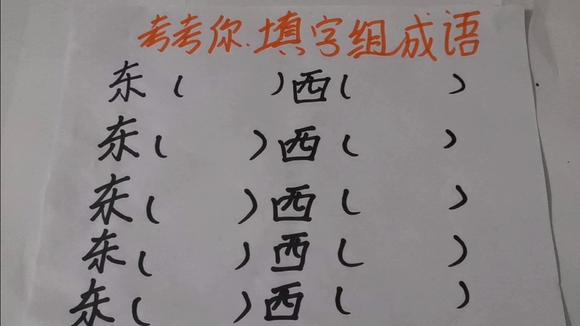 考考你.填字组成语
东（ ）西（ ）
东（ ）西（ ）
东（ ）西（ ）
东（ ）西（ ）
东（ ）西（ ）